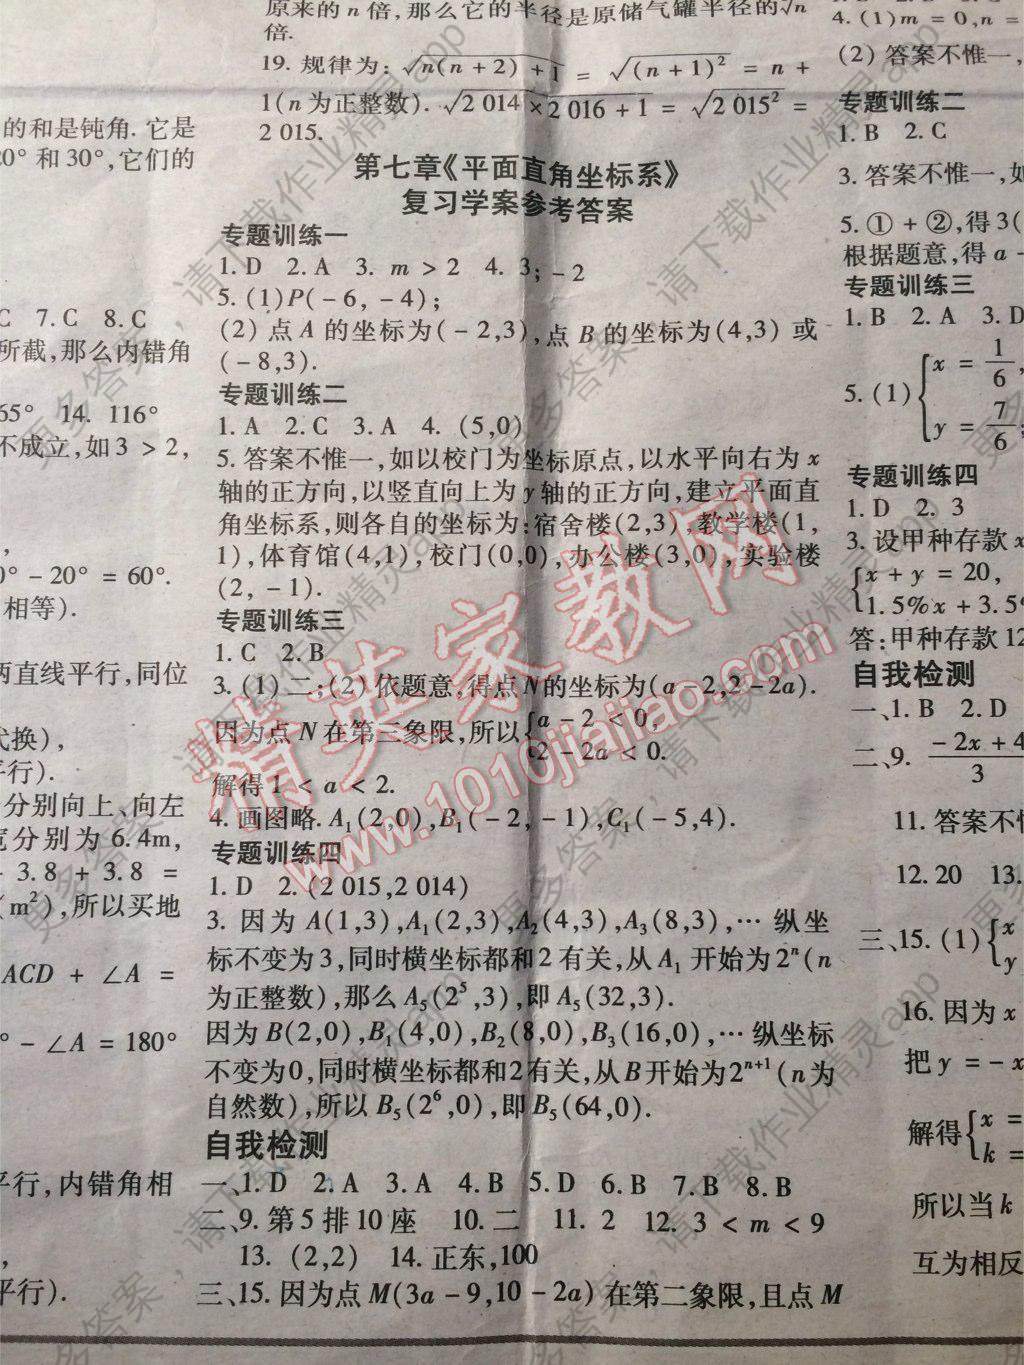 的和是钝角. 它是
0° 和 30°, 它们的
C 7. C 8. C
所截, 那么内错角
65° 14. 116°
不成立, 如 3 > 2,
0° - 20° = 60°.
相等).
两直线平行, 同位
代换),
平行).
分别向上、向左
宽分别为 6.4m,
3.8 + 3.8 =
(m²), 所以买地
ACD + ∠A =
° - ∠A = 180°
平行, 内错角相
平行).
原来的 n 倍, 那么它的半径是原储气罐半径的√n
倍.
19. 规律为: √(n(n + 2) + 1) = √((n + 1)²) = n +
1(n 为正整数). √(2 014 × 2 016 + 1) = √(2 015²) =
2 015.
第七章《平面直角坐标系》
复习学案参考答案
专题训练一
1. D 2. A 3. m > 2 4. 3; - 2
5. (1)P( - 6, - 4);
(2) 点 A 的坐标为( - 2,3), 点 B 的坐标为(4,3) 或
( - 8,3).
专题训练二
1. A 2. C 3. A 4. (5,0)
5. 答案不惟一, 如以校门为坐标原点, 以水平向右为 x
轴的正方向, 以竖直向上为 y 轴的正方向, 建立平面直
角坐标系, 则各自的坐标为: 宿舍楼(2,3), 教学楼(1,
1), 体育馆(4,1), 校门(0,0), 办公楼(3,0), 实验楼
(2, - 1).
专题训练三
1. C 2. B
3. (1) 二; (2) 依题意, 得点 N 的坐标为(a - 2,2 - 2a).
因为点 N 在第三象限, 所以{a - 2 < 0,
2 - 2a < 0.
解得 1 < a < 2.
4. 画图略. A₁(2,0), B₁( - 2, - 1), C₁( - 5,4).
专题训练四
1. D 2. (2 015,2 014)
3. 因为 A(1,3), A₁(2,3), A₂(4,3), A₃(8,3), … 纵坐
标不变为 3, 同时横坐标都和 2 有关, 从 A₁ 开始为 2ⁿ(n
为正整数), 那么 A₅(2⁵,3), 即 A₅(32,3).
因为 B(2,0), B₁(4,0), B₂(8,0), B₃(16,0), … 纵坐标
不变为 0, 同时横坐标都和 2 有关, 从 B 开始为 2ⁿ⁺¹(n 为
自然数), 所以 B₅(2⁶,0), 即 B₅(64,0).
自我检测
一、1. D 2. A 3. A 4. B 5. D 6. B 7. B 8. B
二、9. 第 5 排 10 座 10. 二 11. 2 12. 3 < m < 9
13. (2,2) 14. 正东, 100
三、15. 因为点 M(3a - 9,10 - 2a) 在第二象限, 且点 M
4. (1)m = 0, n =
(2) 答案不惟一,
专题训练二
1. B 2. C
3. 答案不惟一, 如
5. ① + ②, 得 3(
根据题意, 得 a -
专题训练三
1. B 2. A 3. D
5. (1) {x = 1/6,
y = 7/6;
专题训练四
1. D 2. 3
3. 设甲种存款 x
{x + y = 20,
1.5%x + 3.5%
答: 甲种存款 12
自我检测
一、1. B 2. D
二、9. (-2x + 4)/3
11. 答案不惟
12. 20 13.
三、15. (1) {x
y
16. 因为 x
把 y = - x
解得{x =
k =
所以当 k
互为相反
精英家教网
www.1010jiajiao.com
更多答案, 请下载作业精灵app